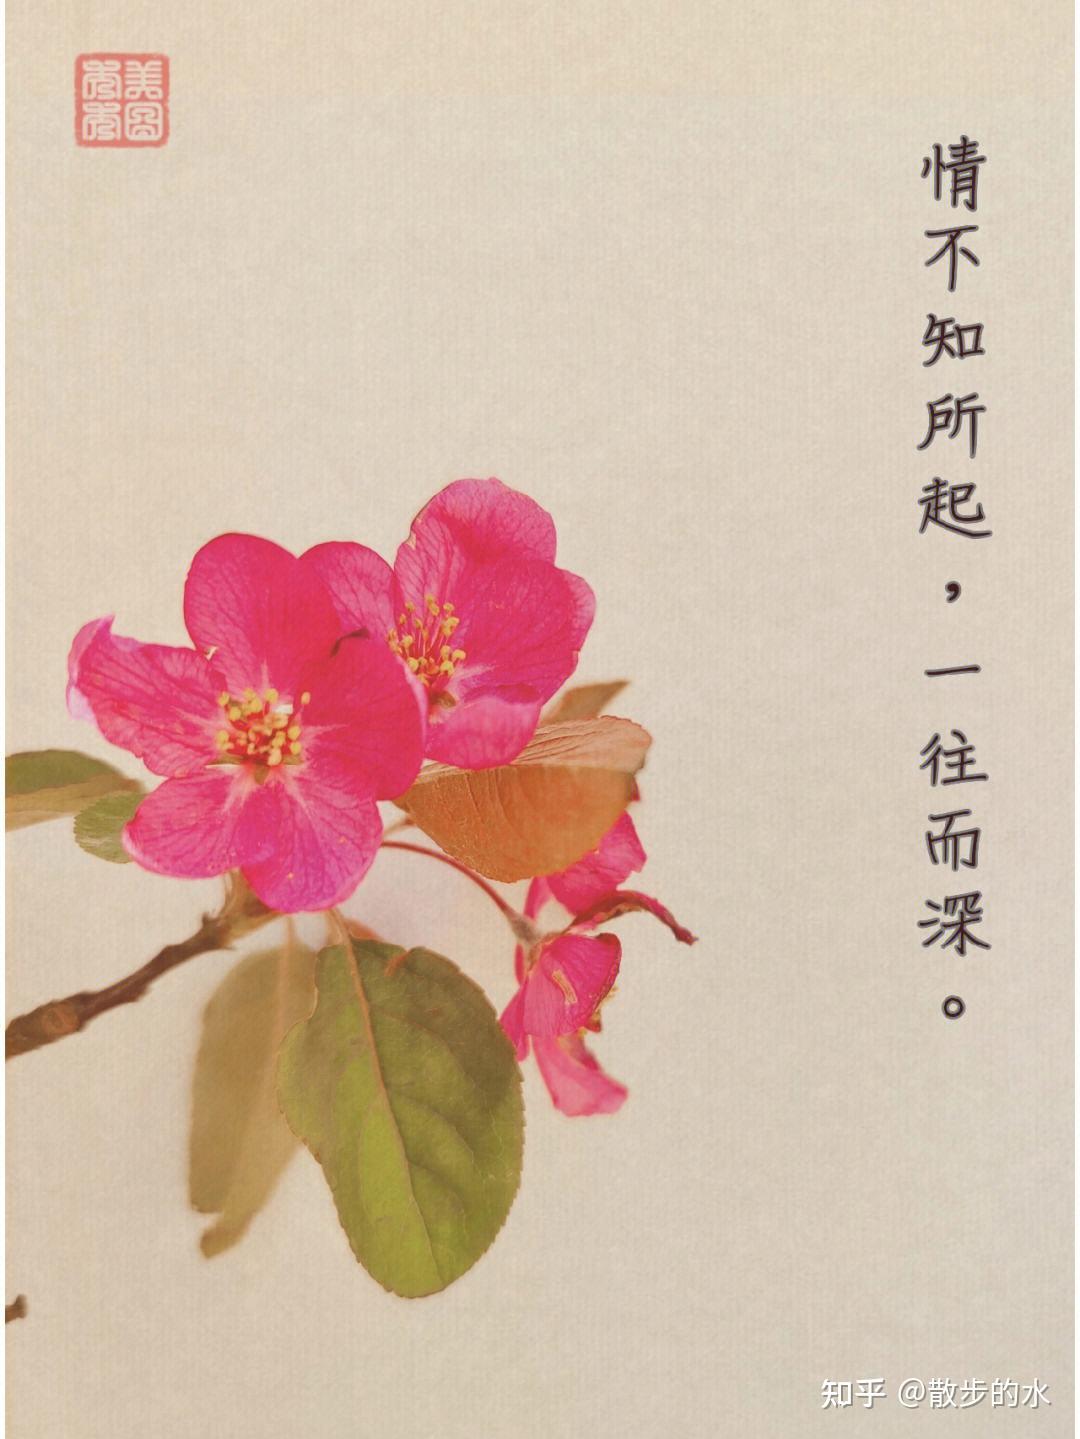 美图
秀秀
情不知所起，一往而深。
知乎 @散步的水